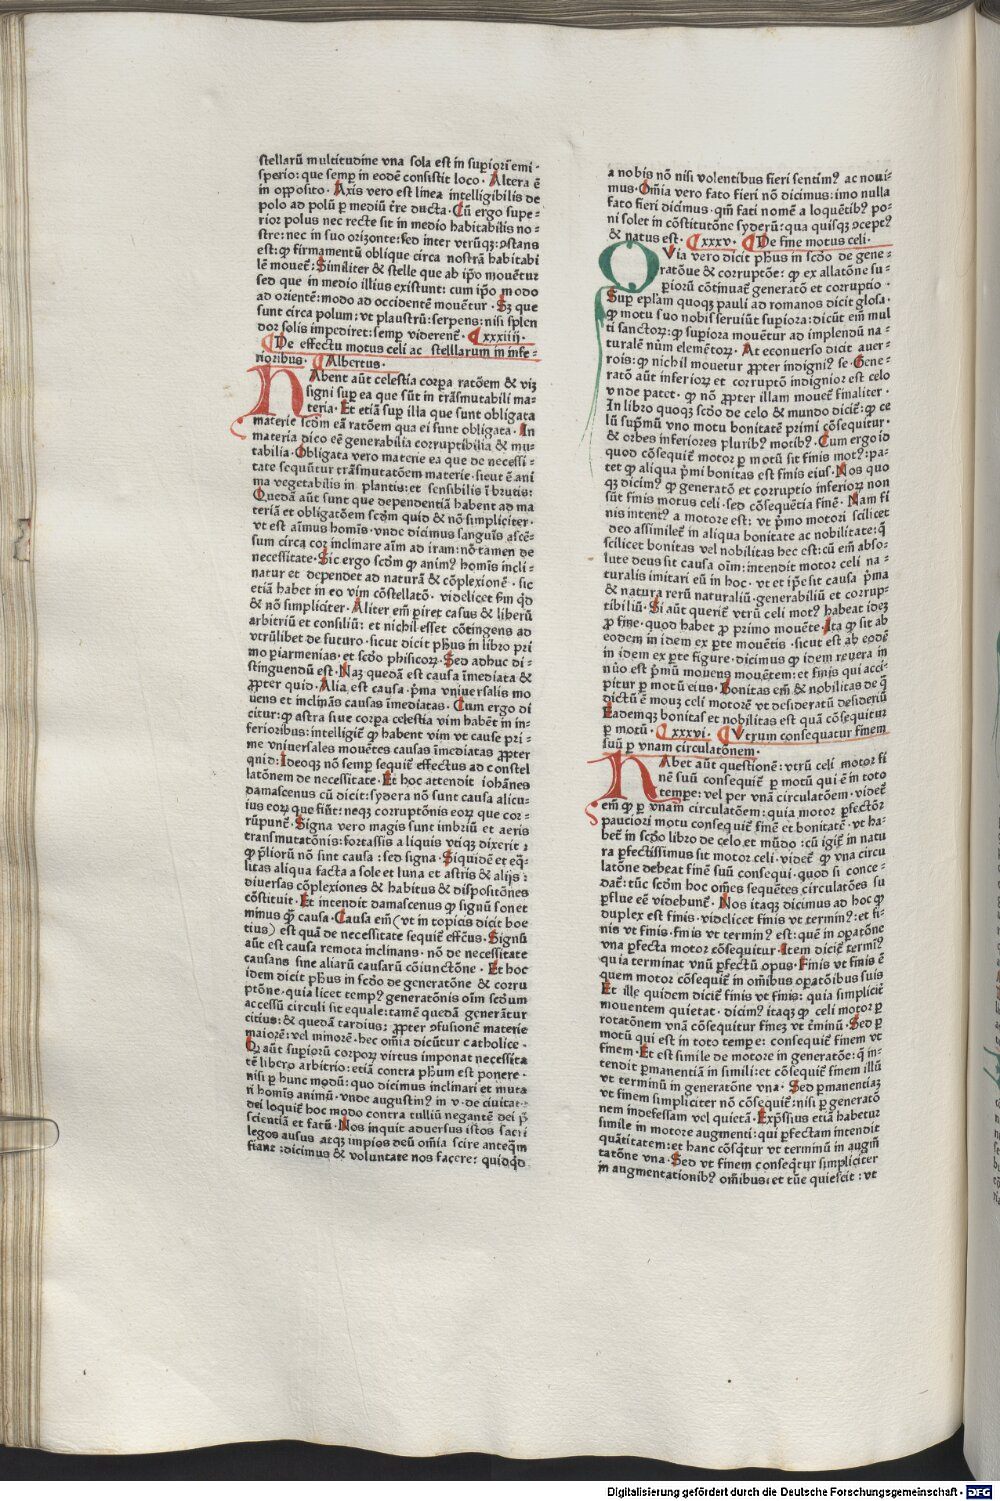 stellarū multitudine vna sola est in superiori emi-
sperio: que semp in eodē consistit loco. Altera ē
in opposito. Axis vero est linea intelligibilis de
polo ad polū p mediū t̄re ducta. Cū ergo supe=
rior polus nec recte sit in medio habitabilis no=
stre: nec in suo orizonte: sed inter vtrūqꝫ: ꝯstans
est: ꝙ firmamentū oblique circa nostrā habitabi
lē mouet̄: Similiter & stelle que ab ip̄o mouētur
sed que in medio illius existunt: cum ip̄o modo
ad orientē: modo ad occidentē mouētur. Sꝫ que
sunt circa polum: vt plaustrū: serpens: nisi splen
dor solis impediret: semp viderent̄. ¶xxxiiij.
¶De effectu motus celi ac stelllarum in infe=
rioribus. ¶Albertus.
HAbent aūt celestia corpa ratōem & viꝫ
signi sup ea que sūt in trāsmutabili ma=
teria. Et etiā sup illa que sunt obligata
materie scd̄m eā ratōem qua ei sunt obligata. In
materia dico eē generabilia corruptibilia & mu=
tabilia. Obligata vero materie ea que de necessi=
tate sequūtur trāsmutatōem materie. sicut ē ani
ma vegetabilis in plantis: et sensibilis ī brutis:
Quedā aūt sunt que dependentiā habent ad ma
teriā et obligatōem scd̄m quid & nō simpliciter.
vt est aīmus homīs. vnde dicimus sanguīs ascē=
sum circa cor inclinare aīm ad iram: nō tamen de
necessitate. Sic ergo scd̄m ꝙ animꝰ homīs incli=
natur et dependet ad naturā & cōplexionē. sic
etiā habet in eo vim cōstellatō. videlicet s̄m qd̄
& nō simpliciter. Aliter em̄ piret casus & liberū
arbitriū et consiliū: et nichil esset cōtingens ad
vtrūlibet de futuro. sicut dicit ph̄us in libro pri
mo piarmenias. et scd̄o phisicoꝝ. Sed adhuc di=
stinguendū est. Naꝫ quedā est causa īmediata &
ꝓpter quid. Alia est causa. p̄ma vniuersalis mo
uens et inclinās causas īmediatas. Cum ergo di
citur: ꝙ astra siue corpa celestia vim habēt in in=
ferioribus: intelligit̄ ꝙ habent vim vt cause pri=
me vniuersales mouētes causas īmediatas ꝓpter
quid: Ideoqꝫ nō semp sequit̄ effectus ad constel
latōnem de necessitate. Et hoc attendit iohānes
damascenus cū dicit: sydera nō sunt causa alicu=
ius eoꝝ que fiūt: neqꝫ corruptōnis eoꝝ que cor=
rūpunt̄. Signa vero magis sunt imbriū et aeris
transmutatōnis: fortassis aliquis vtiqꝫ dixerit:
ꝙ p̄liorū nō sint causa: sed signa. Siquidē et eq̄=
litas aliqua facta a sole et luna et astris & alijs:
diuersas cōplexiones & habitus & dispositōnes
cōstituit. Et intendit damascenus ꝙ signū sonet
minus q̄ causa. Causa em̄ (vt in topicis dicit boe
tius) est quā de necessitate sequit̄ effc̄us. Signū
aūt est causa remota inclinans. nō de necessitate
causans sine aliarū causarū cōiunctōne. Et hoc
idem dicit ph̄us in scd̄o de generatōne & corru
ptōne. quia licet tempꝰ generatōnis oīm scd̄um
accessū circuli sit equale: tamē quedā generātur
citius: & quedā tardius: ꝓpter ꝯfusionē materie
maiorē: vel minorē. hec omīa dicūtur catholice.
Qꝛ aūt superiorū corpoꝝ virtus imponat necessita
tē libero arbitrio: etiā contra ph̄um est ponere.
nisi p hunc modū: quo dicimus inclinari et muta
ri homīs animū. vnde augustinꝰ in v. de ciuitate
dei loquit̄ hoc modo contra tulliū negantē dei p̄
scientiā et fatū. Nos inquit aduersus istos sacri
legos ausus atqꝫ impios deū om̄ia scire anteq̄m
fiant: dicimus & voluntate nos facere: quidqd̄
a nobis nō nisi volentibus fieri sentimꝰ ac noui=
mus. Om̄ia vero fato fieri nō dicimus: imo nulla
fato fieri dicimus. qm̄ fati nomē a loquētibꝰ po=
ni solet in cōstitutōne syderū: qua quisqꝫ ꝯceptꝰ
& natus est. ¶xxxv. ¶De fine motus celi.
QVia vero dicit ph̄us in scd̄o de gene=
ratōue & corruptōe: ꝙ ex allatōne su=
periorū cōtinuat̄ generatō et corruptio.
Sup ep̄lam quoqꝫ pauli ad romanos dicit glosa.
ꝙ motu suo nobis seruiūt superiora: dicūt em̄ mul
ti sanctoꝝ: ꝙ superiora mouētur ad implendū na=
turalē num elemētoꝝ. At econuerso dicit auer=
rois: ꝙ nichil mouetur ꝓpter indigniꝰ se. Gene=
ratō aūt inferioꝝ et corruptō indignior est celo
vnde patet. ꝙ nō ꝓpter illam mouet̄ finaliter.
In libro quoqꝫ scd̄o de celo & mundo dicit̄: ꝙ ce
lū supmū vno motu bonitatē primi cōsequitur.
& orbes inferiores pluribꝰ motibꝰ. Cum ergo id
quod cōsequit̄ motor p motū sit finis motꝰ: pa=
tet ꝙ aliqua p̄mi bonitas est finis eiuſ. Nos quo
qꝫ dicimꝰ ꝙ generatō et corruptio inferioꝝ non
sūt finis motus celi. sed cōsequētia finē. Nam fi
nis intentꝰ a motore est: vt p̄mo motori scilicet
deo assimilet̄ in aliqua bonitate ac nobilitate: q̄
scilicet bonitas vel nobilitas hec est: cū em̄ abso=
lute deus sit causa oīm: intendit motor celi na=
turalis imitari eū in hoc. vt et ip̄e sit causa p̄ma
& natura rerū naturaliū. generabiliū et corrup=
tibiliū. Si aūt querit̄ vtrū celi motꝰ habeat ideꝫ
ꝓ fine. quod habet ꝓ primo mouēte. Ita ꝙ sit ab
eodem in idem ex pte mouētis. sicut est ab eodē
in idem ex pte figure. dicimus ꝙ idem reuera in
nūo est p̄mū mouens mouētem: et finis qui acci=
pitur p motū eius. Bonitas em̄ & nobilitas de q̄
dictū ē mouꝫ celi motorē vt desideratū desideriū
Eademqꝫ bonitas et nobilitas est quā cōsequitur
p motū. ¶xxxvi. ¶Vtrum consequatur finem
suū p vnam circulatōnem.
HAbet aūt questionē: vtrū celi motor fi
nē suū consequit̄ p motū qui ē in toto
tempe: vel per vnā circulatōem. videt̄
em̄ ꝙ p vnam circulatōem: quia motor pfectōr
pauciori motu consequit̄ finē et bonitatē. vt ha=
bet̄ in scd̄o libro de celo et mūdo: cū igit̄ in natu
ra pfectissimus sit motor celi. videt̄ ꝙ vna circu
latōne debeat finē suū consequi. quod si conce=
dat̄: tūc scd̄m hoc om̄es sequētes circulatōes su
pflue eē videbunt̄. Nos itaqꝫ dicimus ad hoc ꝙ
duplex est finis. videlicet finis vt terminꝰ: et fi=
nis vt finis. finis vt terminꝰ est: quē in opatōne
vna pfecta motor cōsequitur. Item dicit̄ termīꝰ
quia terminat vnū pfectū opus. Finis vt finis ē
quem motor cōsequit̄ in om̄ibus opatōibus suis
Et ille quidem dicit̄ finis vt finis: quia simplicit̄
mouentem quietat. dicimꝰ itaqꝫ ꝙ celi motor p
rotatōnem vnā cōsequitur fineꝫ vt t̄minū. Sed p
motū qui est in toto tempe: consequit̄ finem vt
finem. Et est simile de motore in generatōe: q̄ in=
tendit pmanentiā in simili: et cōsequit̄ finem illū
vt terminū in generatōne vna. Sed pmanentiaꝫ
vt finem simpliciter nō cōsequit̄: nisi p generatō
nem indefessam vel quietā. Exp̄ssius etiā habetur
simile in motore augmenti: qui pfectam intendit
quātitatem: et hanc cōsq̄tur vt terminū in augm̄
tatōne vna. Sed vt finem conseq̄tur simpliciter
in augmentationibꝰ om̄ibus: et tūc quiescit: vt
Digitalisierung gefördert durch die Deutsche Forschungsgemeinschaft - DFG